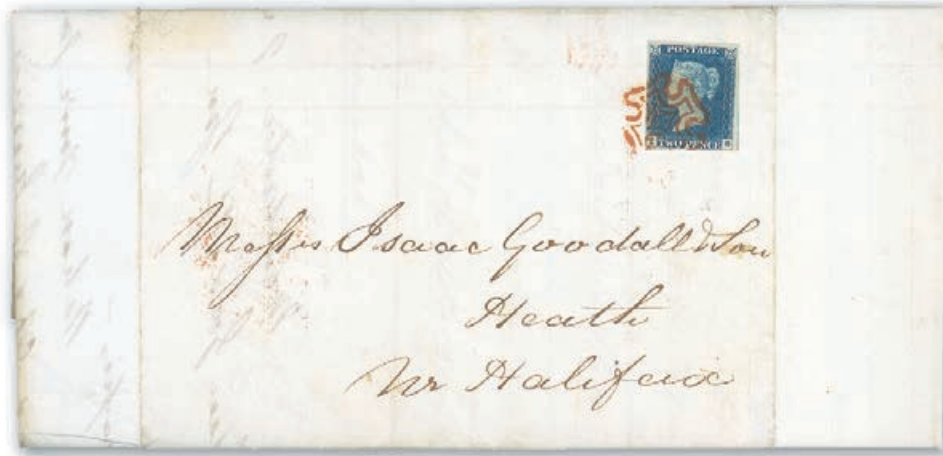 POSTAGE
TWO PENCE
Messrs Isaac Goodall & Son
Heath
Nr Halifax